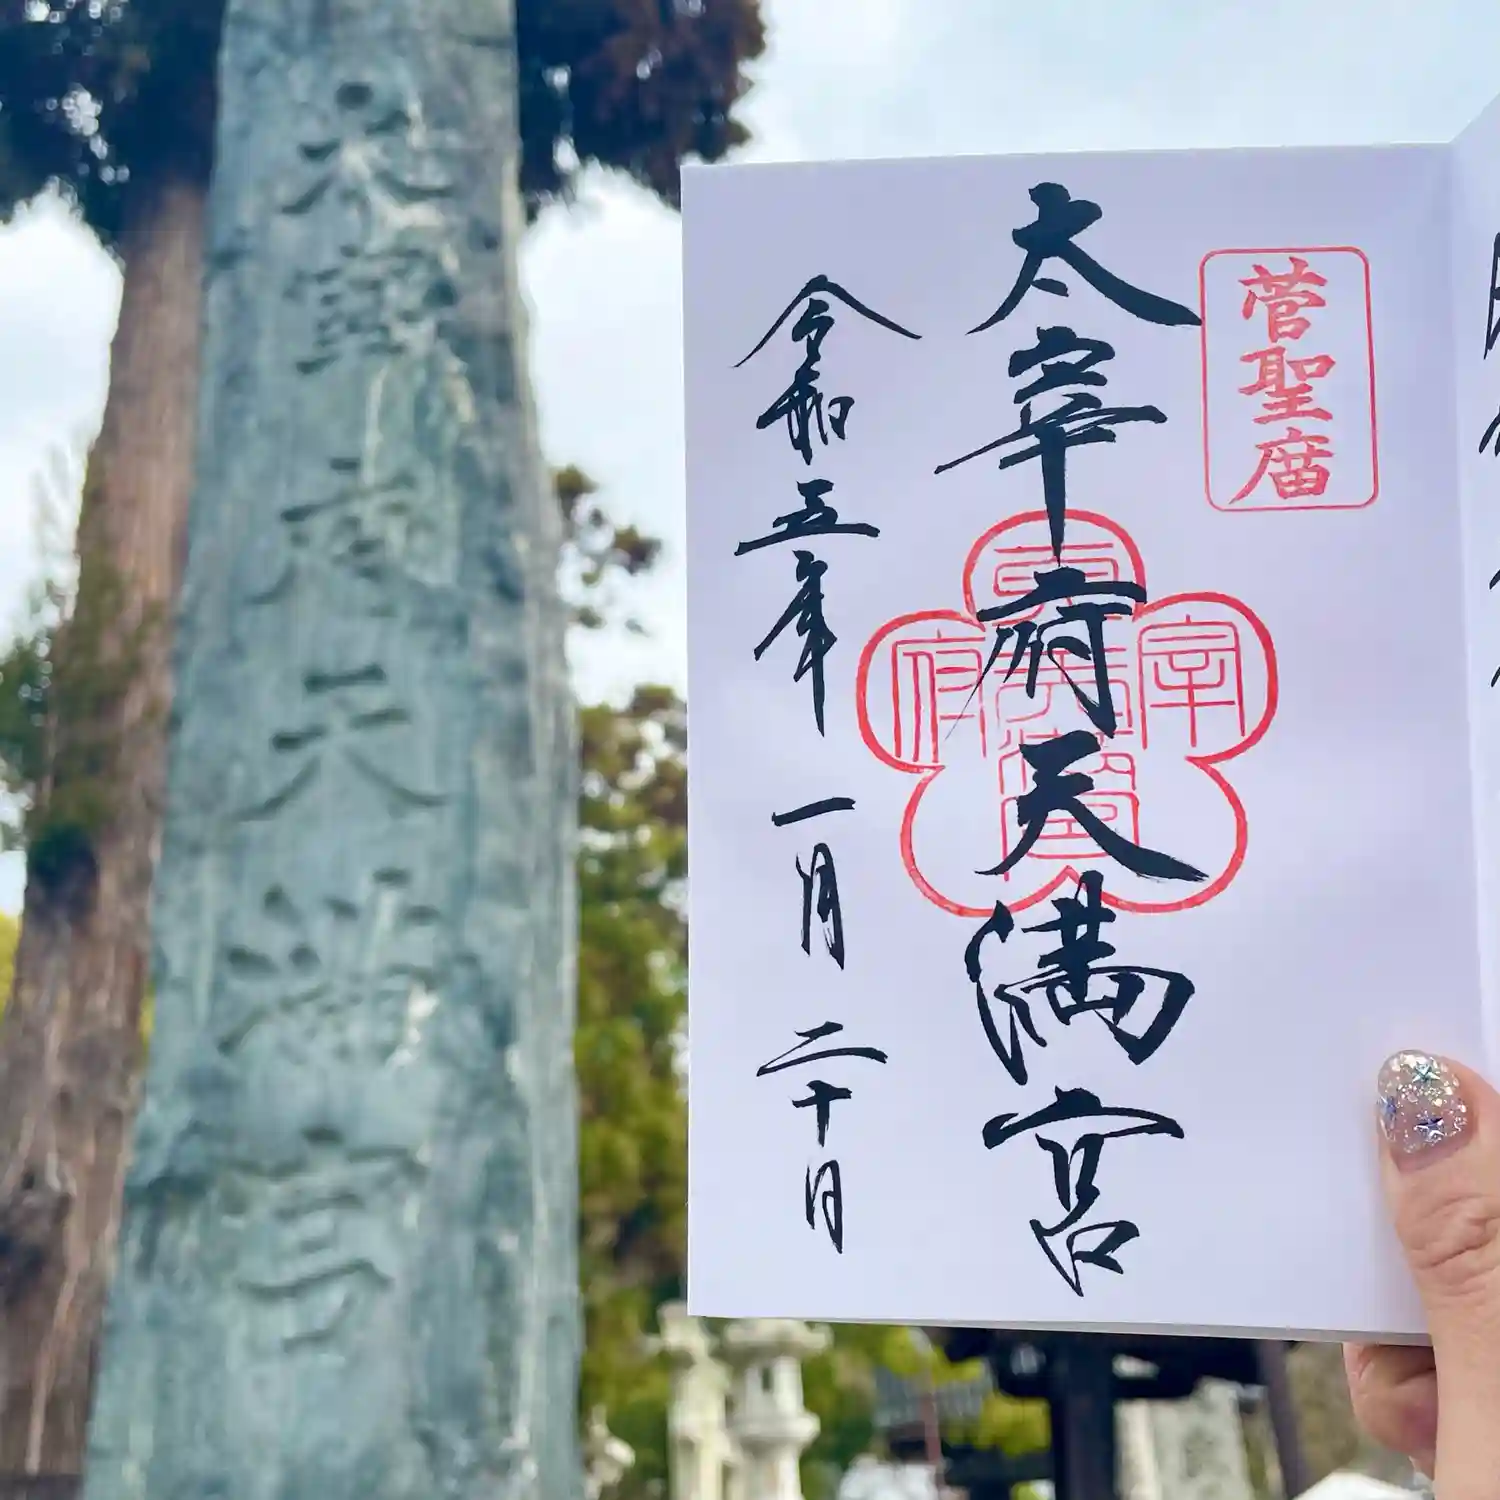 太宰府天満宮
菅聖庿
太宰府天満宮
令和五年 一月 二十日